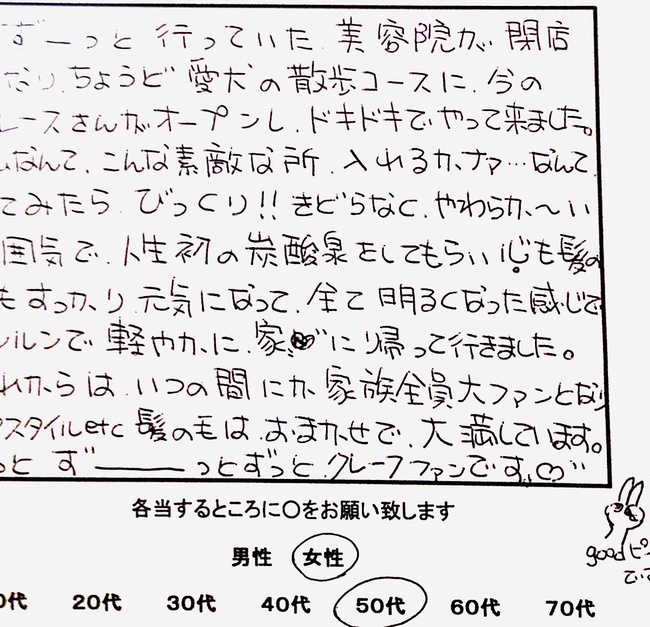 ずーっと 行っていた 美容院が 閉店
なり、ちょうど 愛犬の散歩コースに、今の
レースさんがオープンし、ドキドキでやって来ました。
なんて、こんな素敵な所、入れるかナァ…なんて、
てみたら、びっくり!! きどらなく、やわらか〜い
囲気で、人生初の炭酸泉をしてもらい 心も髪の
もすっかり元気になって、全て明るくなった感じで
ルンで 軽やかに、家に帰って行きました。
れからは、いつの間にか 家族全員大ファンとなり
スタイルetc 髪の毛は、おまかせで、大満しています。
っと ず———っとずっと、クレースファンです。
各当するところに〇をお願い致します
男性 女性
0代 20代 30代 40代 50代 60代 70代
goodピ